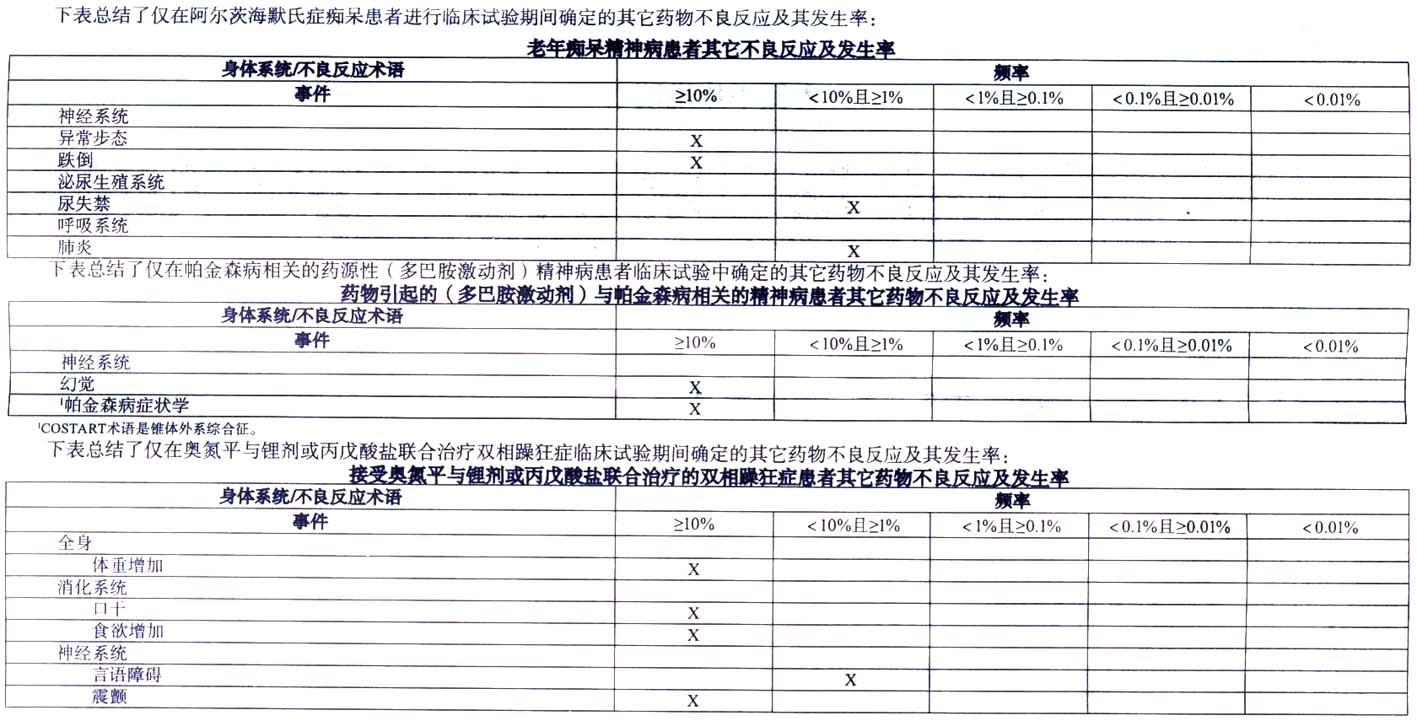 下表总结了仅在阿尔茨海默氏症痴呆患者进行临床试验期间确定的其它药物不良反应及其发生率：
老年痴呆精神病患者其它不良反应及发生率
身体系统/不良反应术语 频率
事件 ≥10% <10%且≥1% <1%且≥0.1% <0.1%且≥0.01% <0.01%
神经系统
异常步态 X
跌倒 X
泌尿生殖系统
尿失禁 X
呼吸系统
肺炎 X
下表总结了仅在帕金森病相关的药源性（多巴胺激动剂）精神病患者临床试验中确定的其它药物不良反应及其发生率：
药物引起的（多巴胺激动剂）与帕金森病相关的精神病患者其它药物不良反应及发生率
身体系统/不良反应术语 频率
事件 ≥10% <10%且≥1% <1%且≥0.1% <0.1%且≥0.01% <0.01%
神经系统
幻觉 X
¹帕金森病症状学 X
¹COSTART术语是锥体外系综合征。
下表总结了仅在奥氮平与锂剂或丙戊酸盐联合治疗双相躁狂症临床试验期间确定的其它药物不良反应及其发生率：
接受奥氮平与锂剂或丙戊酸盐联合治疗的双相躁狂症患者其它药物不良反应及发生率
身体系统/不良反应术语 频率
事件 ≥10% <10%且≥1% <1%且≥0.1% <0.1%且≥0.01% <0.01%
全身
体重增加 X
消化系统
口干 X
食欲增加 X
神经系统
言语障碍 X
震颤 X